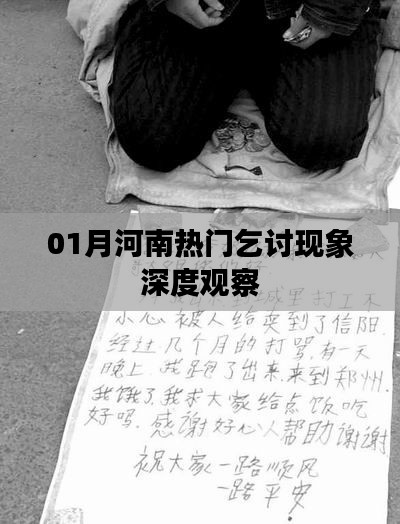 01月河南热门乞讨现象
深度观察
城里打工不
小心被人给卖到了信阳.
经过几个月的打骂,有一天
晚上 我跑了出来,来到郑州.
我饿了我求大家给点饭吃
好吗. 感谢好心人帮助谢谢
祝大家一路顺风
一路平安!